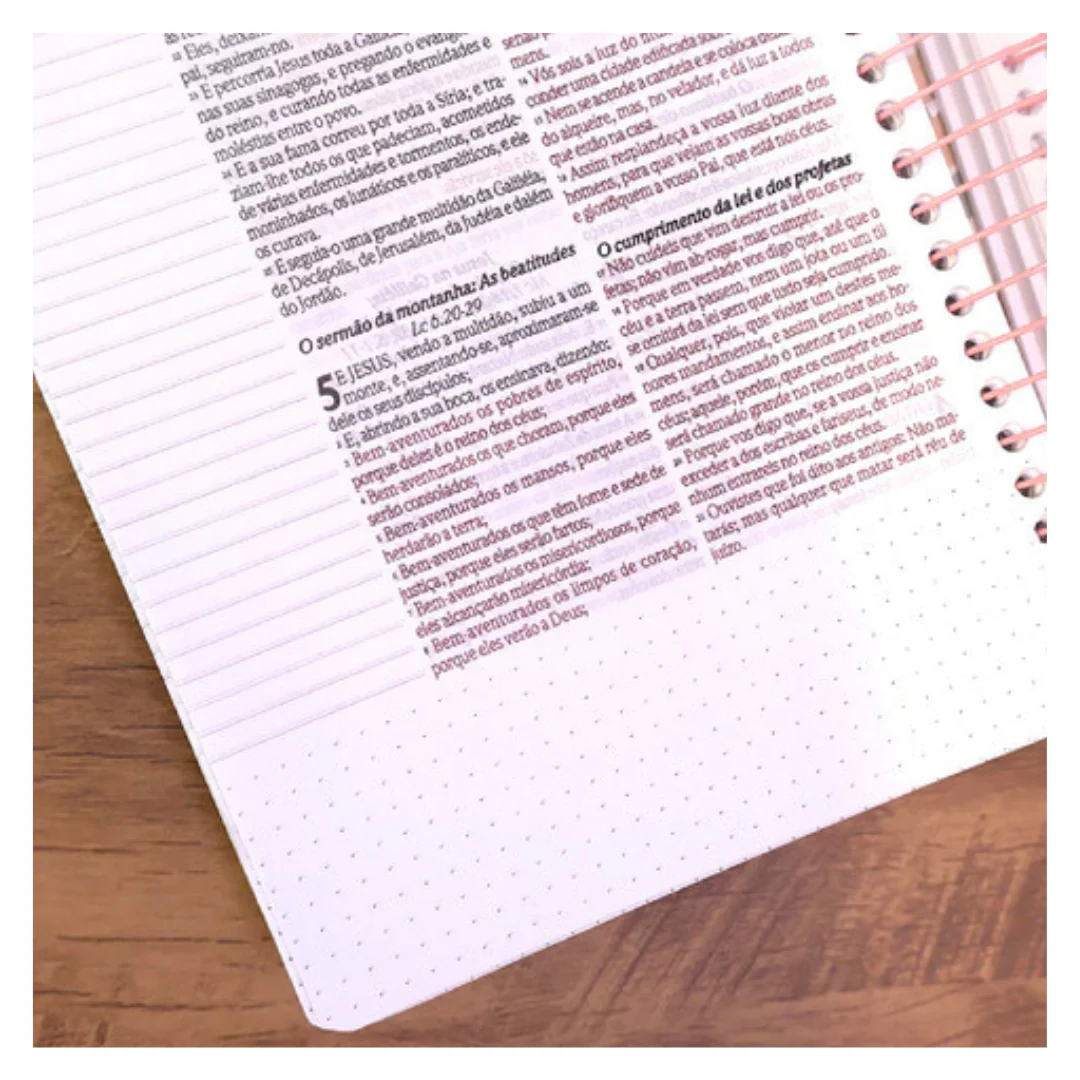 Eles, deixan
pal, seguiram-no.
23 E percorria Jesus toda a Galiléia, ensinando
nas suas sinagogas, e pregando o evangelho
do reino, e curando todas as enfermidades e
moléstias entre o povo.
24 E a sua fama correu por toda a Síria; e tra-
ziam-lhe todos os que padeciam, acometidos
de várias enfermidades e tormentos, os ende-
moninhados, os lunáticos e os paralíticos, e ele
os curava.
25 E seguia-o uma grande multidão da Galiléia,
de Decápolis, de Jerusalém, da Judéia e dalém
do Jordão.
O sermão da montanha: As beatitudes
Lc 6.20-29
5 E JESUS, vendo a multidão, subiu a um
monte, e, assentando-se, aproximaram-se
dele os seus discípulos;
2 E, abrindo a sua boca, os ensinava, dizendo:
3 Bem-aventurados os pobres de espírito,
porque deles é o reino dos céus;
4 Bem-aventurados os que choram, porque eles
serão consolados;
5 Bem-aventurados os mansos, porque eles
herdarão a terra;
6 Bem-aventurados os que têm fome e sede de
justiça, porque eles serão fartos;
7 Bem-aventurados os misericordiosos, porque
eles alcançarão misericórdia;
8 Bem-aventurados os limpos de coração,
porque eles verão a Deus;
mens.
14 Vós sois a luz do
conder uma cidade edificada
15 Nem se acende a candeia e se coloca
do alqueire, mas, no velador, e dá luz a todos
que estão na casa.
16 Assim resplandeça a vossa luz diante dos
homens, para que vejam as vossas boas obras
e glorifiquem a vosso Pai, que está nos céus.
O cumprimento da lei e dos profetas
17 Não cuideis que vim destruir a lei ou os pro-
fetas; não vim ab-rogar, mas cumprir.
18 Porque em verdade vos digo que, até que o
céu e a terra passem, nem um jota ou um til
se omitirá da lei sem que tudo seja cumprido.
19 Qualquer, pois, que violar um destes me-
nores mandamentos, e assim ensinar aos ho-
mens, será chamado o menor no reino dos
céus; aquele, porém, que os cumprir e ensinar
será chamado grande no reino dos céus.
20 Porque vos digo que, se a vossa justiça não
exceder a dos escribas e fariseus, de modo ne-
nhum entrareis no reino dos céus.
21 Ouvistes que foi dito aos antigos: Não ma-
tarás; mas qualquer que matar será réu de
juízo.